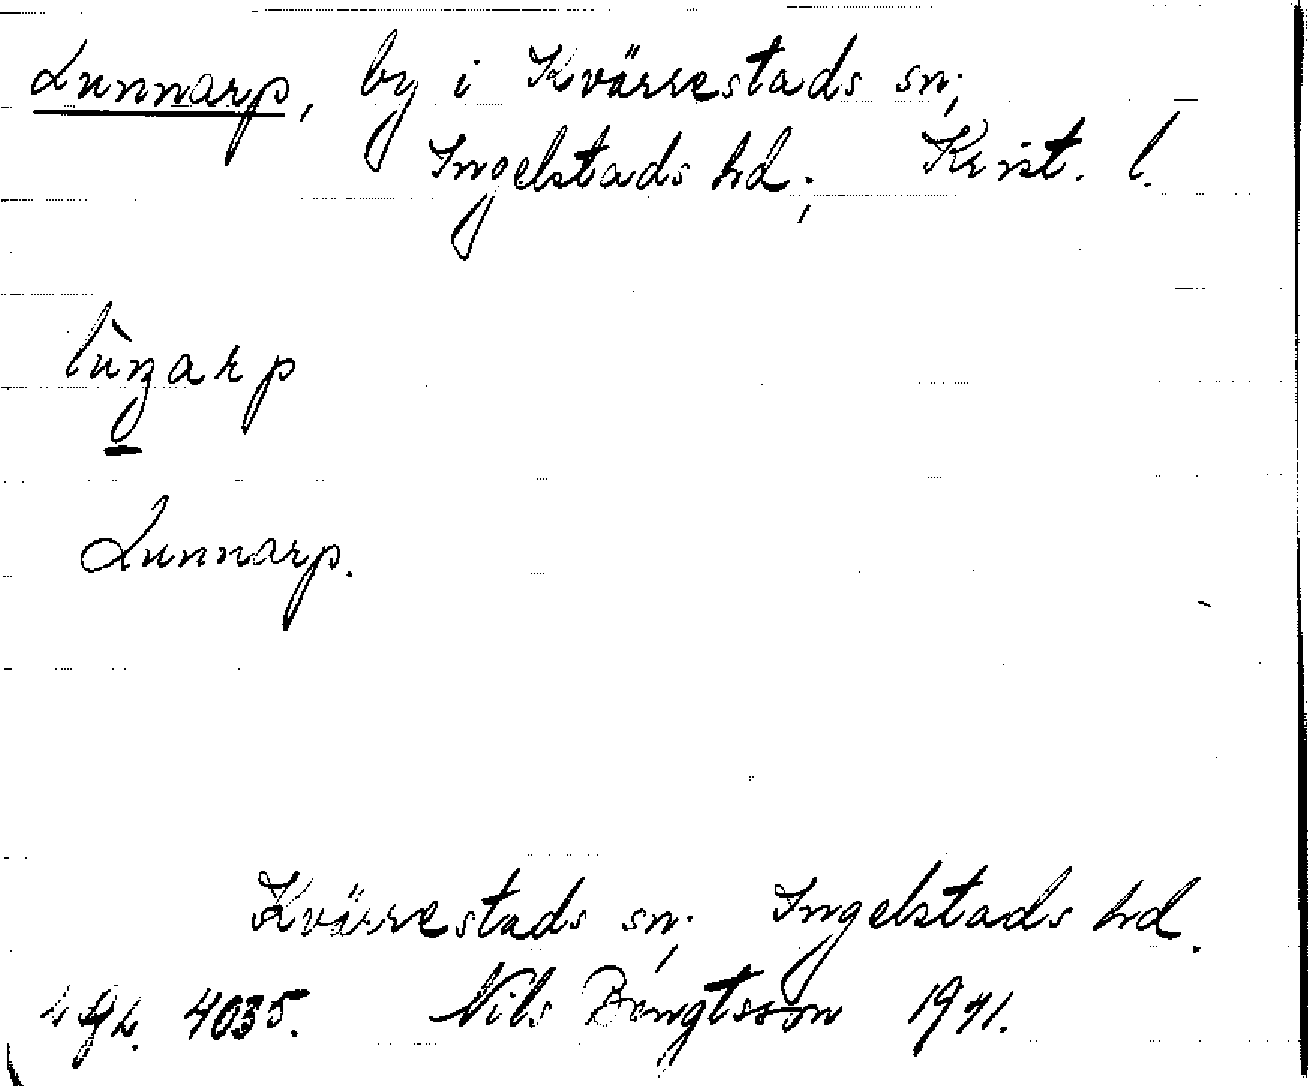 Lunnarp, by i Kvärrestads sn;
Ingelstads hd; Krist. l.
Lunnarp.
Kvärrestads sn; Ingelstads hd.
4035. Nils Bengtsson 1941.